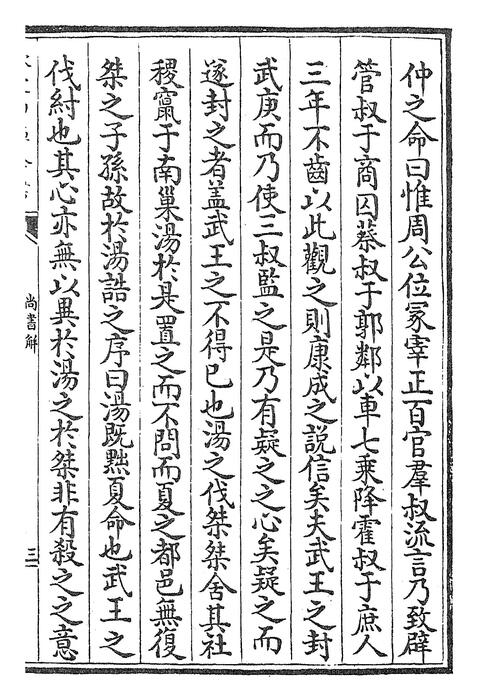 仲之命曰惟周公位冡宰正百官羣叔流言乃致辟
管叔于商囚蔡叔于郭鄰以車七乘降霍叔于庶人
三年不齒以此觀之則康成之説信矣夫武王之封
武庚而乃使三叔監之是乃有疑之之心矣疑之而
遂封之者盖武王之不得已也湯之伐桀桀舍其社
稷竄于南巢湯於是置之而不問而夏之都邑無復
桀之子孫故於湯誥之序曰湯既黜夏命也武王之
伐紂也其心亦無以異於湯之於桀非有殺之之意
尚書解
三